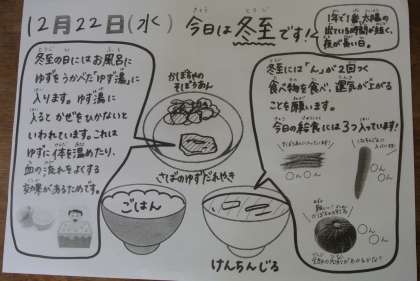 12月22日(水) 今日は冬至です！
1年で1番、太陽の
出ている時間が短く、
夜が長い日。
冬至の日にはお風呂に
ゆずをうかべた「ゆず湯」に
入ります。ゆず湯に
入ると かぜをひかないと
いわれています。これは
ゆずに体を温めたり、
血の流れをよくする
効果があるためです。
かぼちゃの
そぼろあん
さばのゆずだれやき
ごはん
けんちんじる
冬至には「ん」が2回つく
食べ物を食べ、運気が上がる
ことを願います。
今日の給食には3つ入っています！
○ん○ん
○ん
○ん
○ん
○ん